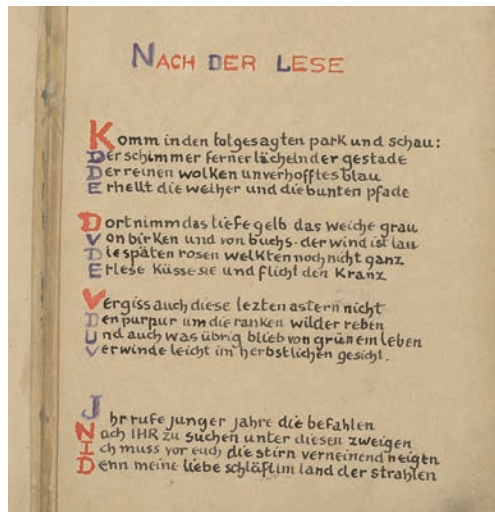 NACH DER LESE
Komm in den totgesagten park und schau:
Der schimmer ferner lächelnder gestade
Der reinen wolken unverhofftes blau
Erhellt die weiher und die bunten pfade
Dort nimm das tiefe gelb das weiche grau
Von birken und von buchs · der wind ist lau
Die späten rosen welkten noch nicht ganz
Erlese küsse sie und flicht den kranz
Vergiss auch diese lezten astern nicht
Den purpur um die ranken wilder reben
Und auch was übrig blieb von grünem leben
Verwinde leicht im herbstlichen gesicht.
Ihr rufe junger jahre die befahlen
Nach IHR zu suchen unter diesen zweigen
Ich muss vor euch die stirn verneinend neigen
Denn meine liebe schläft im land der strahlen